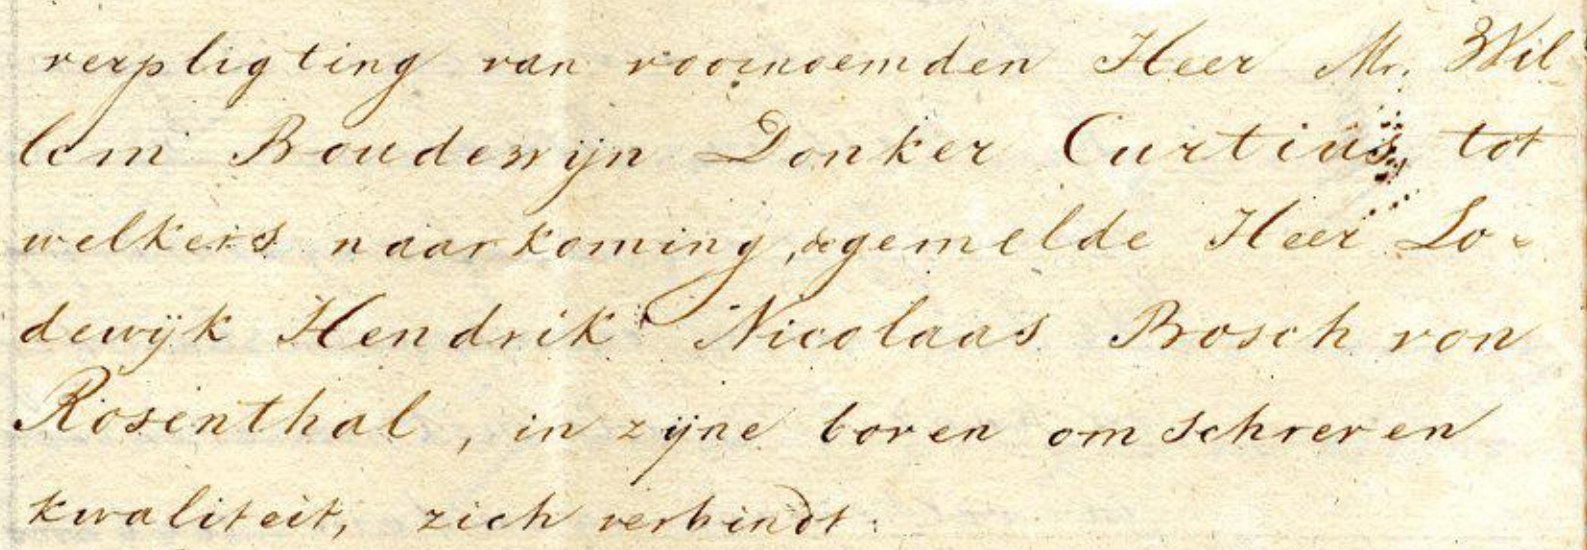 verpligting van voornoemden Heer Mr. Wil-
lem Boudewijn Donker Curtius, tot
welkers naarkoming, gemelde Heer Lo-
dewijk Hendrik Nicolaas Bosch von
Rosenthal, in zijne boven omschreven
kwaliteit, zich verbindt.